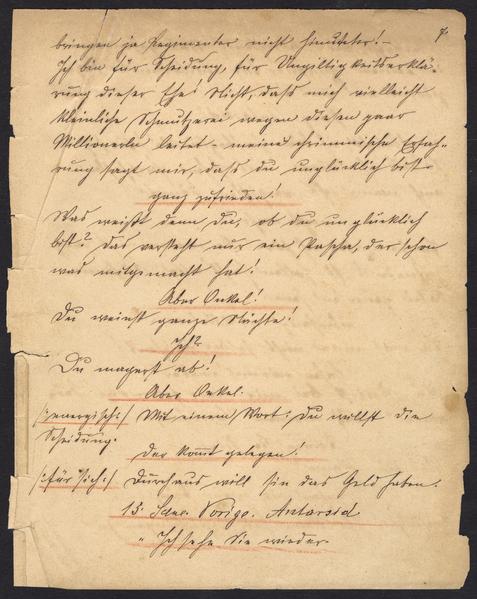 7.
bringen ja Regimenter nicht hinunter! –
Ich bin für Scheidung, für Ungiltigkeitserklä-
rung dieser Ehe! Nicht, dass mich vielleicht
kleinliche Schmutzerei wegen diesen paar
Millionerln leitet – meine Erfah-
rung sagt mir, dass du unglücklich bist
ganz zufrieden!
Was weißt denn du, ob du unglücklich
bist? Das versteht nur ein Pascha, der schon
was mitgemacht hat!
Aber Onkel!
Du weinst ganze Nächte!
Ich?
Du magerst ab!
Aber Onkel.
/:energisch:/ Mit einem Wort: Du willst die
Scheidung.
Der kommt gelegen!
/:für sich:/ Durchaus will sie das Geld haben.
15. Scene. Vorige. Antarsid
„ Ich sehe Sie wieder